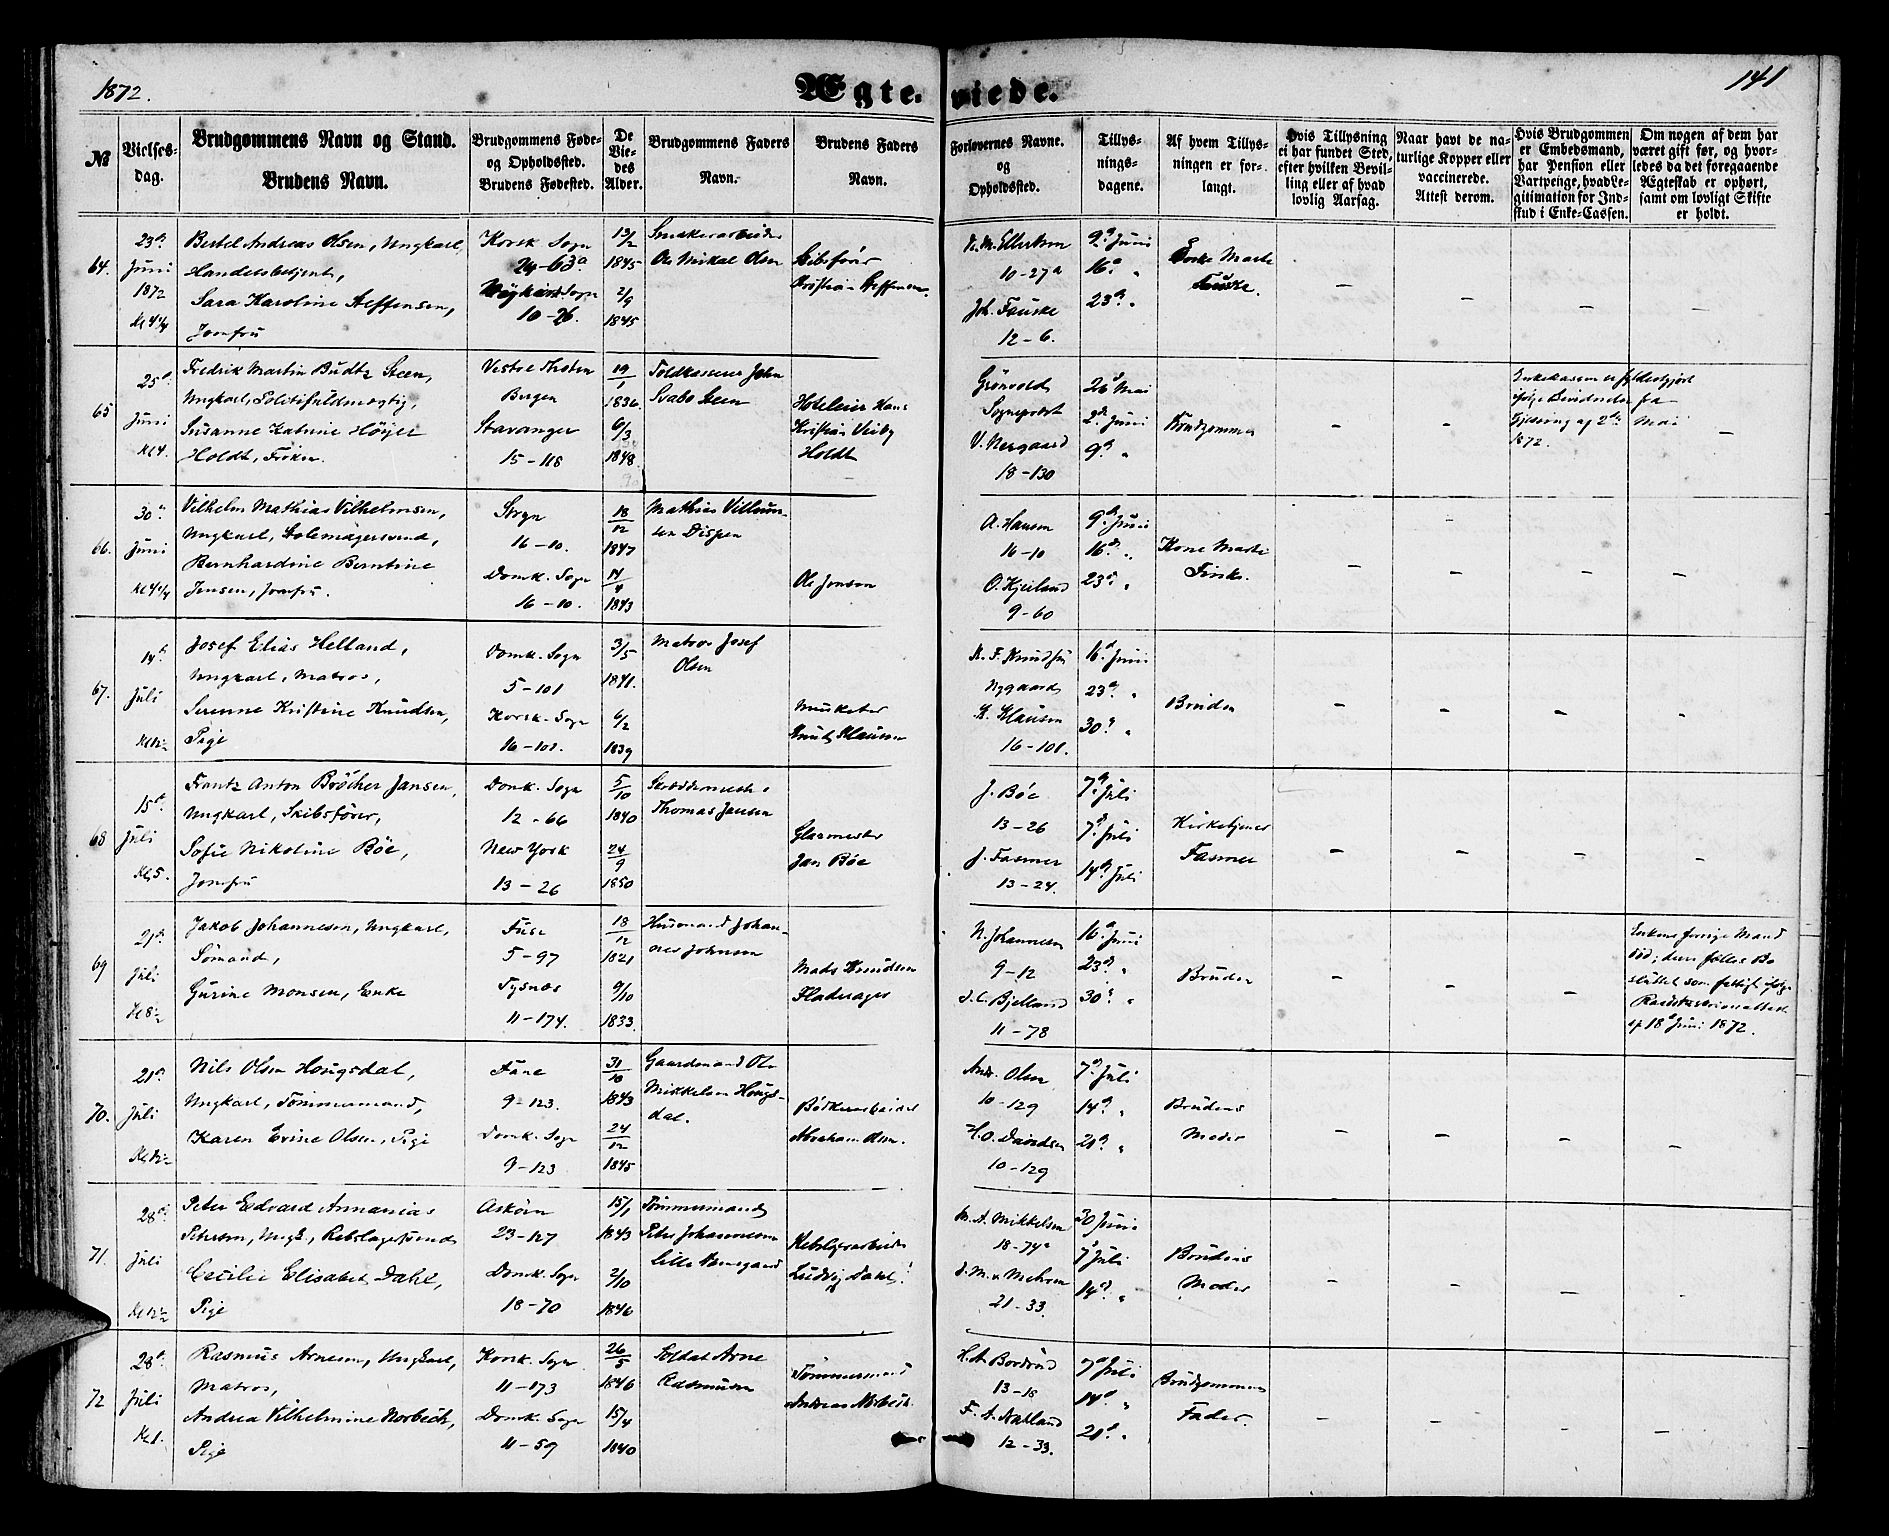 1872.
Ægteviede.
141
№
Vielses-
dag.
Brudgommens Navn og Stand.
Brudens Navn.
Brudgommens Føde-
og Opholdssted.
Brudens Fødested.
De
Vie-
des
Alder.
Brudgommens Faders
Navn.
Brudens Faders
Navn.
Forlovernes Navne.
og
Opholdssted.
Tillys-
nings-
dagene.
Af hvem Tillys-
ningen er for-
langt.
Hvis Tillysning
ei har fundet Sted,
efter hvilken Bevil-
ling eller af hvad
lovlig Aarsag.
Naar havt de na-
turlige Kopper eller
vaccinerede.
Attest derom.
Hvis Brudgommen
er Embedsmand,
har Pension eller
Vartpenge, hvad Le-
gitimation for Ind-
skud i Enke-Cassen.
Om nogen af dem har
været gift før, og hvor-
ledes da det foregaaende
Ægteskab er ophørt,
samt om lovligt Skifte
er holdt.
64.
23d
Juni
1872
Kl 4 1/4
Bertel Andreas Olsen, Ungkarl,
Handelsbetjent,
Sara Karoline Steffensen,
Jomfru
Korsk. Sogn
24-63a
Sogn
10-26.
13/2
1845
2/9
1845
Snekkerarbeider
Ole Mikal Olsen
Skibsfører
Kristian Steffensen.
Ellertsen
10-27a
Joh. Fauske
12-6.
9d Juni
16d "
23d "
Marte
Fauske.
65
25d
Juni
Kl 4.
Fredrik Martin Budtz Steen,
Ungkarl, Politifuldmægtig,
Susanne Katrine Höyer
Holdt, Fröken.
Vestre Thoten
Bergen
Stavanger
15-118
19/1
1836.
6/3
1848.
Toldkasserer John
Svabo Steen
Hoteleier Hans
Kristian Veiby
Holdt
Grönvold
Sogneprest
V. Nergaard
18-130
26d Mai
2d Juni
9d "
Brudgommen
Enkekassen er fyldestgjort
ifølge fra
af 2d Mai
1872.
66.
30d
Juni
Kl 4 1/4
Vilhelm Mathias Vilhelmsen,
Ungkarl, Stolemagersvend,
Bernhardine Berntine
Jensen, Jomfru.
Stryn
16-10.
Domk. Sogn
16-10.
18/12
1847
14/4
1843
Mathias Villum-
sen Dispen
Ole Jonsen
A. Hansen
16-10
O. Kjeiland
9-60
9d Juni
16d "
23d "
Kone Marte
67.
14d
Juli
Josef Elias Helland,
Ungkarl, Matros,
Serenne Kristine Knudsen,
Pige
Domk. Sogn
5-101
Korsk. Sogn
16-101.
3/5
1841.
6/2
1839
Matros Josef
Olsen
Musketer
Knud Klausen
Nygaard
K. Klausen
16-101.
16d Juni
23d "
30d "
Bruden
68
15d
Juli
Kl 5.
Frantz Anton Bröcher Jansen,
Ungkarl, Skibsfører,
Sofie Nikoline Böe,
Jomfru
Domk. Sogn
12-66
New York
13-26
5/10
1840
24/9
1850
Skræddermester
Thomas Jansen
Glarmester
Jan Böe
J. Böe
13-26
J. Fasmer
13-24.
7d Juli
7d Juli
14d Juli
Kirketjener
Fasmer
69
21d
Juli
Jakob Johannesen, Ungkarl,
Sömand,
Gurine Monsen, Enke
Fuse
5-97
Tysnæs
11-174.
18/12
1821
9/10
1833.
Husmand Johan-
nes Johnsen
Mads Knudsen
Fladerager
N. Johannesen
9-12
J. C. Bjelland
11-78
16d Juni
23d "
30d "
Bruden
Enkens forrige Mand
död; deres fælles Bo
sluttet som fattigt ifølge
af 18d Juni 1872.
70.
21d
Juli
Nils Olsen Hougsdal,
Ungkarl, Tömmermand,
Karen Evine Olsen, Pige
Fane
9-123.
Domk. Sogn
9-123
31/10
1843
24/12
1845
Gaardmand Ole
Mikkelsen Hougs-
dal.
Bödkerarbeider
Abraham Olsen.
Andr. Olsen
10-129
H. O. Davidsen
10-129
7d Juli
14d "
21d "
Brudens
Moder
71.
28d
Juli
Peter Edvard Annanias
Petersen, Ungk., Rebslagersvend
Cecilie Elisabet Dahl,
Pige
Askøen
23-127
Domk. Sogn
18-70
15/1
1843
2/10
1846
Tömmermand
Peter Johannesen
Lille
Rebslagerarbeider
Ludvig Dahl.
A. Mikkelsen
18-74a
21-33.
30 Juni
7d Juli
14d "
Brudens
Moder
72
28d
Juli
Kl 1.
Rasmus Arnesen, Ungkarl,
Matros,
Andrea Vilhelmine Norbech,
Pige
Korsk. Sogn
11-173
Domk. Sogn
11-59
26/5
1846
15/4
1840
Soldat Arne
Rasmussen
Tömmermand
Andreas Norbech
13-18
F. A. Natland
12-33.
7d Juli
14d "
21d "
Brudgommens
Fader.